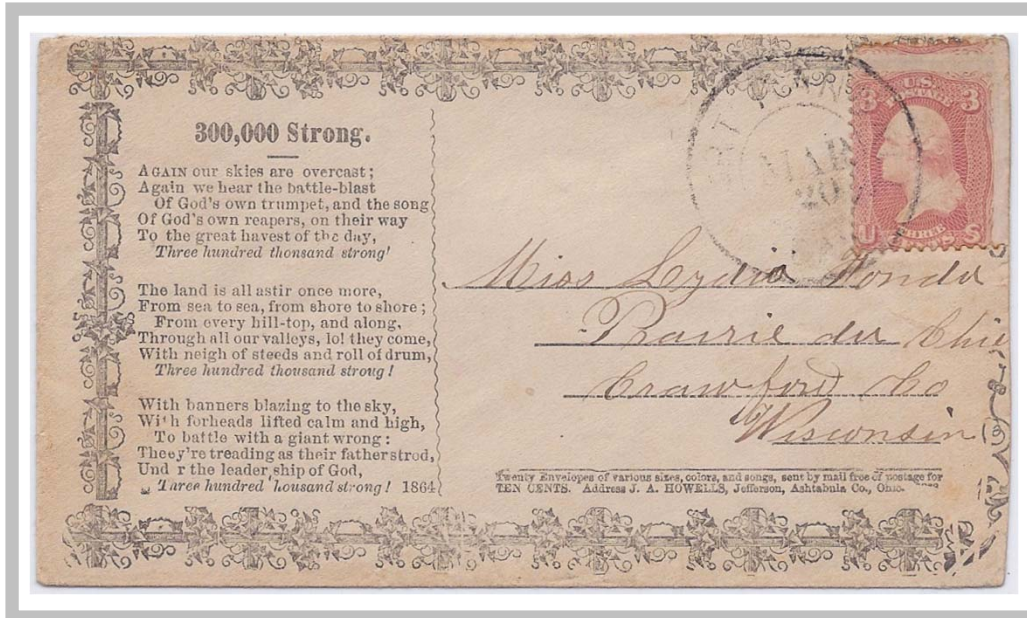 300,000 Strong.
AGAIN our skies are overcast;
Again we hear the battle-blast
Of God's own trumpet, and the song
Of God's own reapers, on their way
To the great havest of the day,
Three hundred thonsand strong!
The land is all astir once more,
From sea to sea, from shore to shore;
From every hill-top, and along,
Through all our valleys, lo! they come,
With neigh of steeds and roll of drum,
Three hundred thousand stroug!
With banners blazing to the sky,
Wi h forheads lifted calm and high,
To battle with a giant wrong:
Theey're treading as their fatherstrod,
Und r the leader ship of God,
Three hundred housand strong! 1864
MAR
20
U.S.
POSTAGE
3 3
U S
Miss Lydia Fonda
Prairie du Chie
Crawford Co
Wisconsin
Twenty Envelopes of various sizes, colors, and songs, sent by mail free of postage for
TEN CENTS. Address J. A. HOWELLS, Jefferson, Ashtabula Co., Ohio.